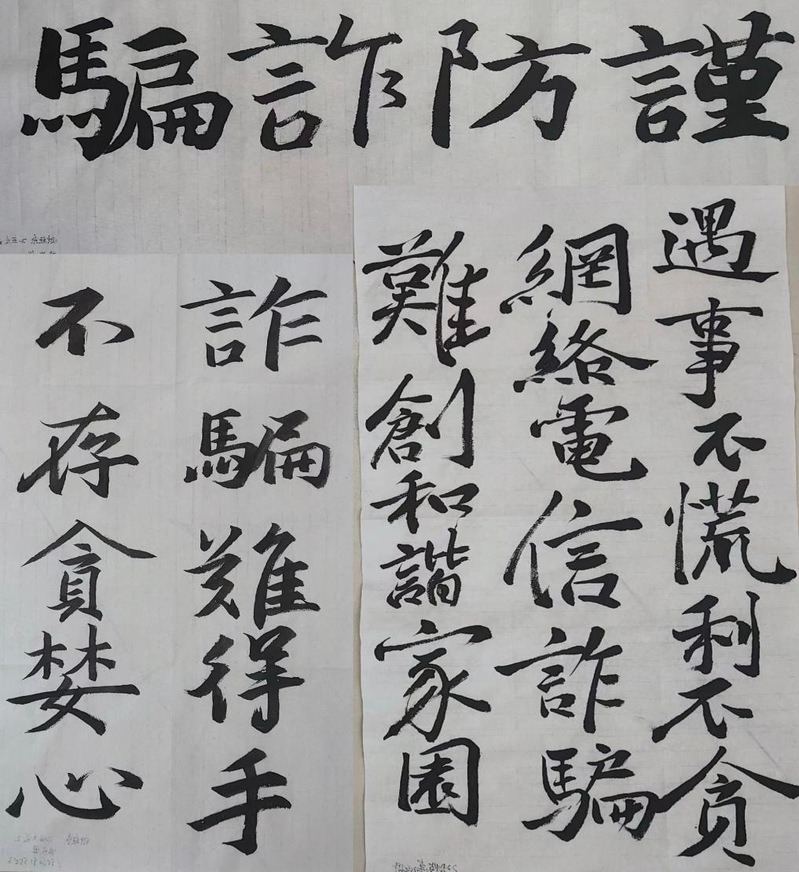 謹防詐騙
遇事不慌利不貪
網絡電信詐騙
難創和諧家園
詐騙难得手
不存貪婪心